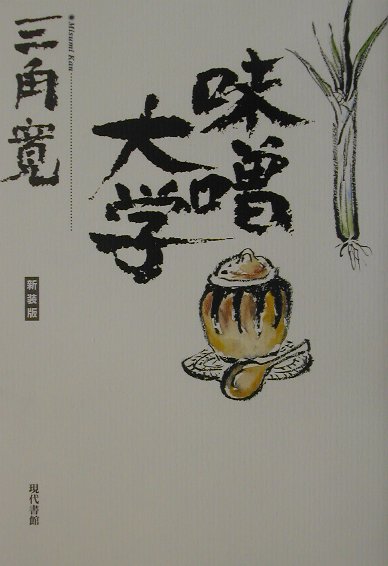 味噌
大学
三角寛
Misumi Kan
新装版
現代書館